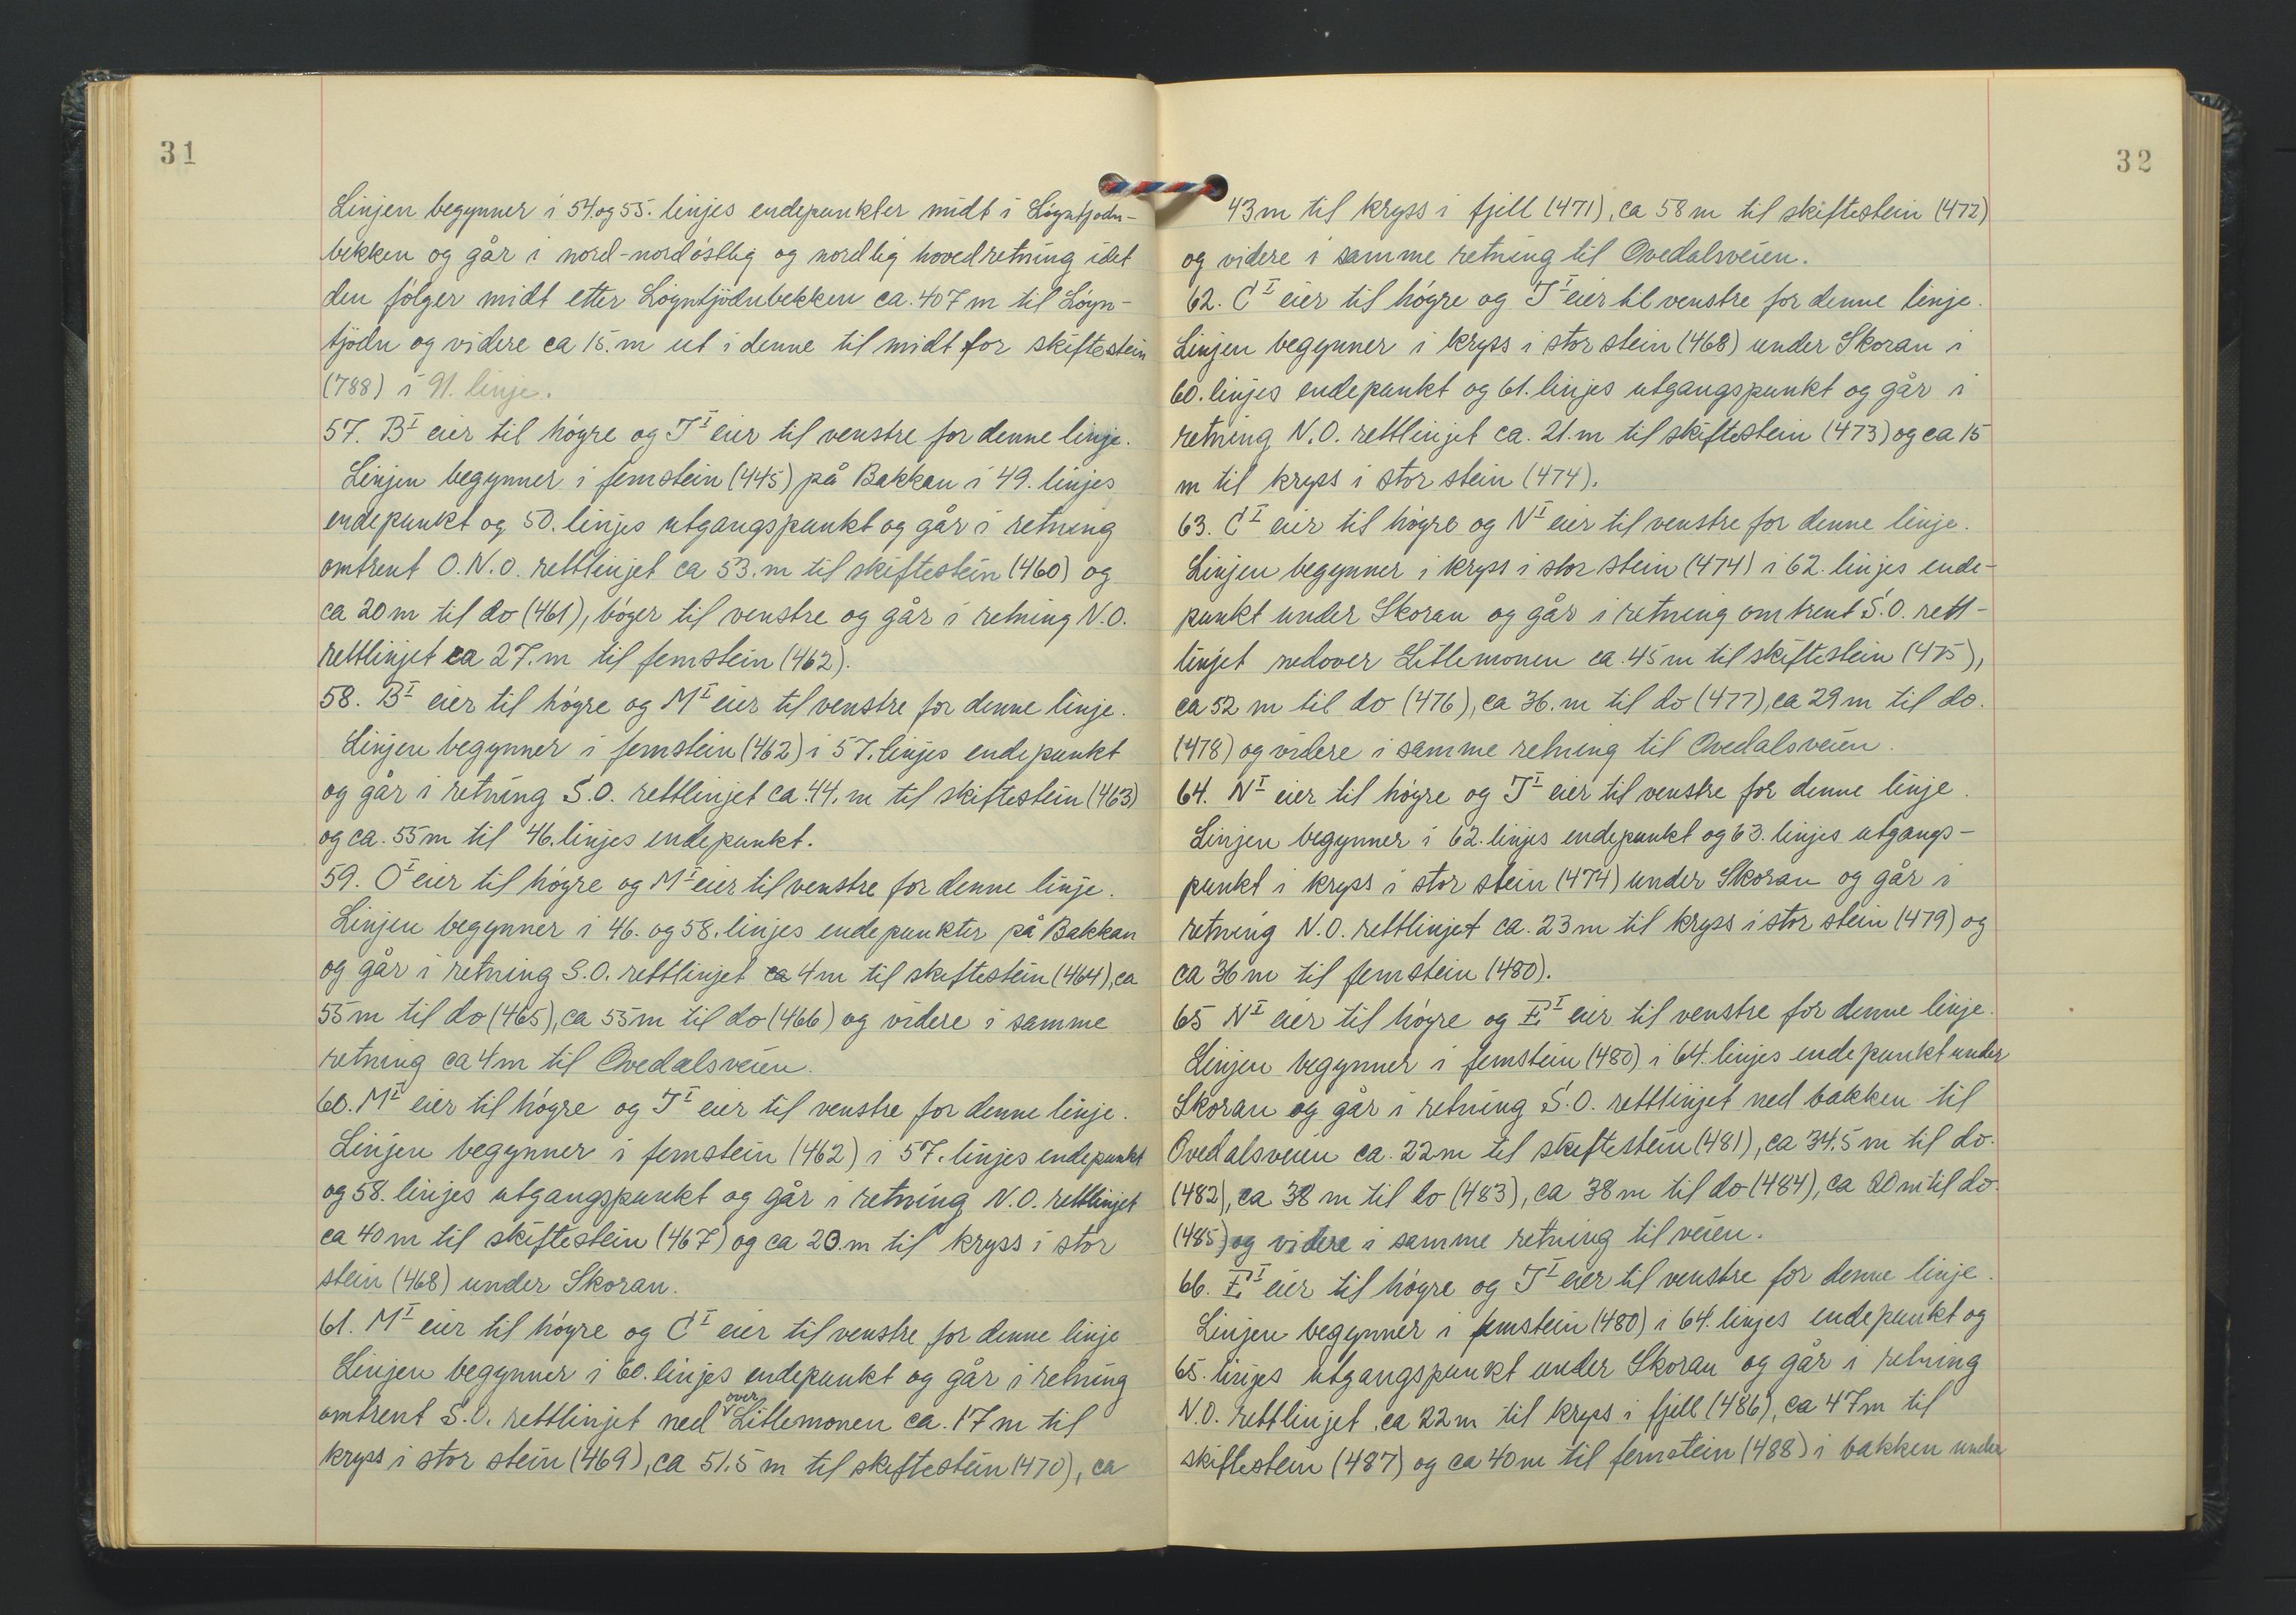 31
Linjen begynner i 54. og 55. linjes endepunkter midt i Lógntjødn-
bekken og går i nord-nordóstlig og nordlig hovedretning idet
den fólger midt etter Lógntjódnbekken ca. 407 m til Lógn-
tjódn og videre ca 15. m ut i denne til midt for skiftestein
(788) i 91. linje.
57. B^I eier til hógre og T^I eier til venstre for denne linje.
Linjen begynner i femstein (445) på Bakkan i 49. linjes
endepunkt og 50. linjes utgangspunkt og går i retning
omtrent O.N.O. rettlinjet ca 53. m til skiftestein (460) og
ca 20 m til do (461), bóger til venstre og går i retning N.O.
rettlinjet ca 27. m til femstein (462).
58. B^I eier til hógre og M^I eier til venstre for denne linje.
Linjen begynner i femstein (462) i 57. linjes endepunkt
og går i retning S.O. rettlinjet ca. 44. m til skiftestein (463)
og ca. 55 m til 46. linjes endepunkt.
59. O^I eier til hógre og M^I eier til venstre for denne linje.
Linjen begynner i 46. og 58. linjes endepunkter på Bakkan
og går i retning S.O. rettlinjet ca 4 m til skiftestein (464), ca
55 m til do (465), ca 55 m til do (466) og videre i samme
retning ca 4 m til Ovedalsveien.
60. M^I eier til hógre og T^I eier til venstre for denne linje.
Linjen begynner i femstein (462) i 57. linjes endepunkt
og 58. linjes utgangspunkt og går i retning N.O. rettlinjet
ca 40 m til skiftestein (467) og ca 20. m til kryss i stor
stein (468) under Skoran.
61. M^I eier til hógre og C^I eier til venstre for denne linje
Linjen begynner i 60. linjes endepunkt og går i retning
omtrent S.O. rettlinjet ned over Litlemonen ca. 17 m til
kryss i stor stein (469), ca 51.5 m til skiftestein (470), ca
32
43 m til kryss i fjell (471), ca 58 m til skiftestein (472)
og videre i samme retning til Ovedalsveien.
62. C^I eier til hógre og T^I eier til venstre for denne linje.
Linjen begynner i kryss i stor stein (468) under Skoran i
60. linjes endepunkt og 61. linjes utgangspunkt og går i
retning N.O. rettlinjet ca. 21. m til skiftestein (473) og ca 15
m til kryss i stor stein (474).
63. C^I eier til hógre og N^I eier til venstre for denne linje.
Linjen begynner i kryss i stor stein (474) i 62. linjes ende-
punkt under Skoran og går i retning omtrent S.O. rett-
linjet nedover Litlemonen ca. 45 m til skiftestein (475),
ca 52 m til do (476), ca 36. m til do (477), ca 29 m til do.
(478) og videre i samme retning til Ovedalsveien.
64. N^I eier til hógre og T^I eier til venstre for denne linje.
Linjen begynner i 62. linjes endepunkt og 63. linjes utgangs-
punkt i kryss i stor stein (474) under Skoran og går i
retning N.O. rettlinjet ca. 23 m til kryss i stor stein (479) og
ca 36 m til femstein (480).
65 N^I eier til hógre og E^I eier til venstre for denne linje.
Linjen begynner i femstein (480) i 64. linjes endepunkt under
Skoran og går i retning S.O. rettlinjet ned bakken til
Ovedalsveien ca. 22 m til skiftestein (481), ca 34.5 m til do.
(482), ca 38 m til do (483), ca 38 m til do (484), ca 20 m til do.
(485) og videre i samme retning til veien.
66. E^I eier til hógre og T^I eier til venstre for denne linje.
Linjen begynner i femstein (480) i 64. linjes endepunkt og
65. linjes utgangspunkt under Skoran og går i retning
N.O. rettlinjet, ca 22 m til kryss i fjell (486), ca 47 m til
skiftestein (487) og ca 40 m til femstein (488) i bakken under